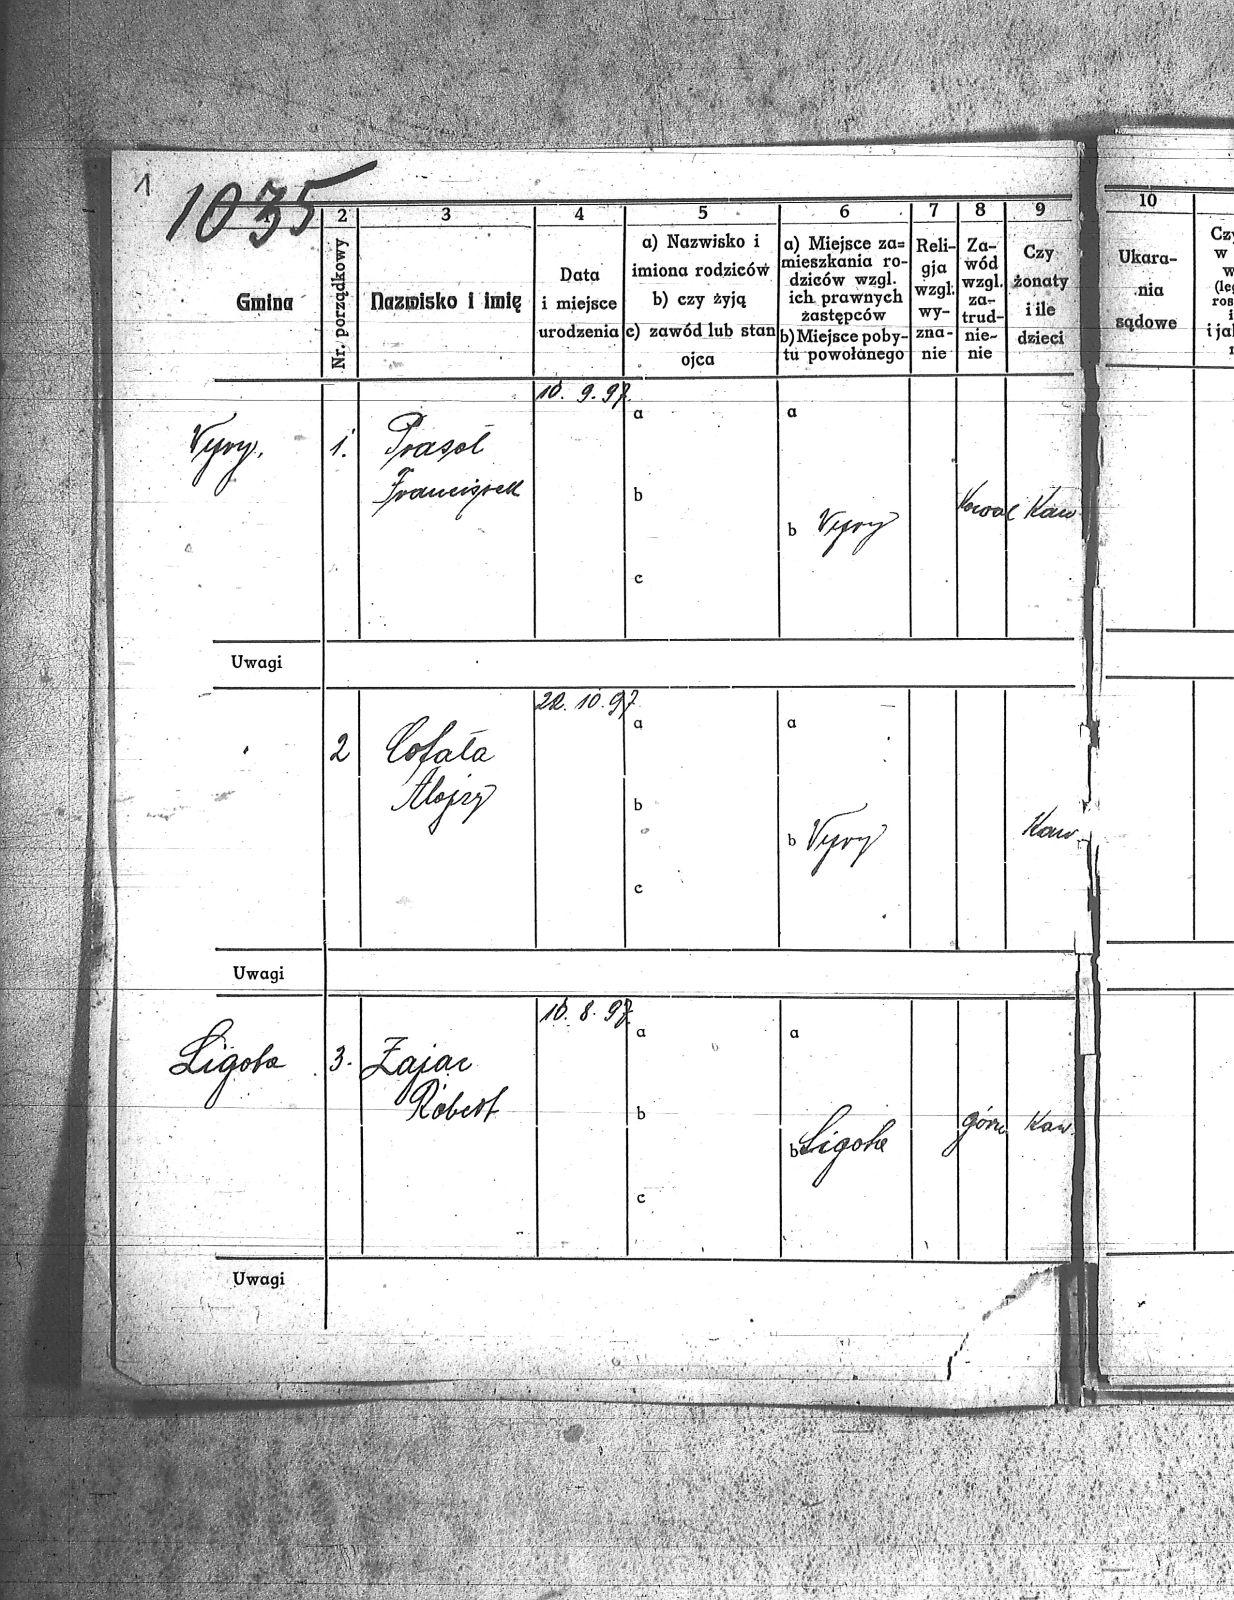 1
1035
2 3 4 5 6 7 8 9 10
Gmina
Nr. porządkowy
Nazwisko i imię
Data
i miejsce
urodzenia
a) Nazwisko i
imiona rodziców
b) czy żyją
c) zawód lub stan
ojca
a) Miejsce za=
mieszkania ro-
dziców wzgl.
ich prawnych
zastępców
b) Miejsce poby-
tu powołanego
Reli-
gja
wzgl.
wy-
zna-
nie
Za-
wód
wzgl.
za-
trud-
nie-
nie
Czy
żonaty
i ile
dzieci
Ukara-
nia
sądowe
Czy
w
Wyry.
1.
Prasoł
Franciszek
10. 9. 97.
a
b
c
a
b Wyry
Kowal
Kaw
Uwagi
2
Cofała
Alojzy
22. 10. 97.
a
b
c
a
b Wyry
Kaw
Uwagi
Ligota
3.
Zając
Robert
10. 8. 97.
a
b
c
a
b Ligota
górn
Kaw.
Uwagi